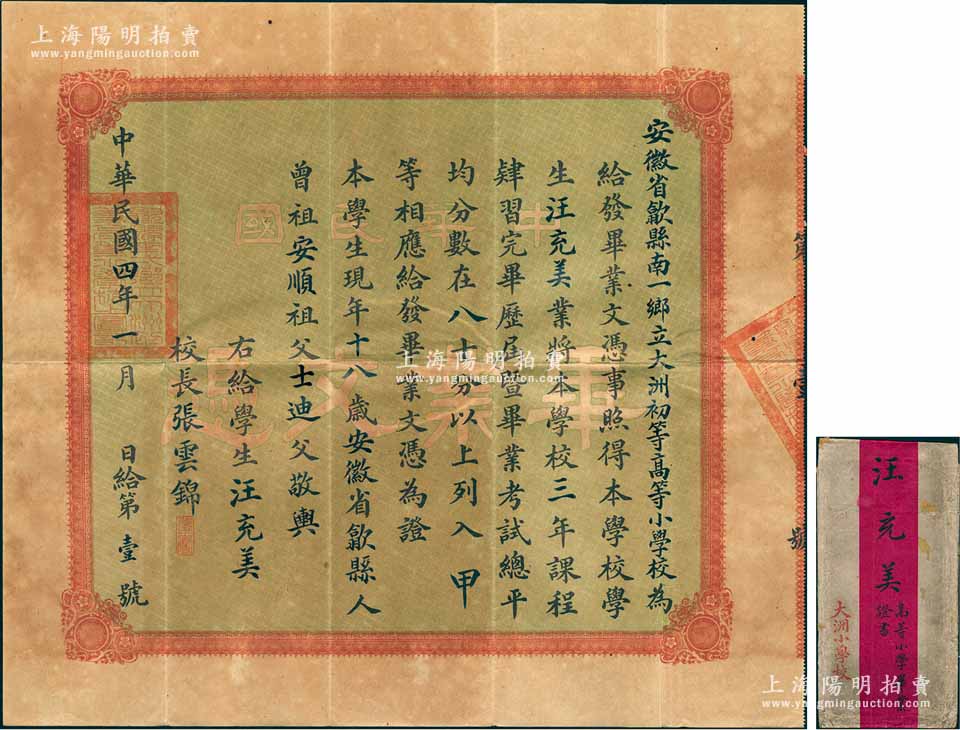 上海陽明拍賣
www.yangmingauction.com
安徽省歙縣南一鄉立大洲初等高等小學校為
給發畢業文憑事照得本學校學
生汪充美業將本學校三年課程
肄習完畢歷屆暨畢業考試總平
均分數在八十分以上列入甲
等相應給發畢業文憑為證
本學生現年十八歲安徽省歙縣人
曾祖安順祖父士迪父敬輿
右給學生汪充美
校長張雲錦
中華民國四年一月 日給第壹號
中華民國
畢業文憑
第壹號
上海陽明拍賣
www.yangmingauction.com
汪充美
高等小學畢業
證書
大洲小學校
上海陽明拍賣
www.yangmingauction.com